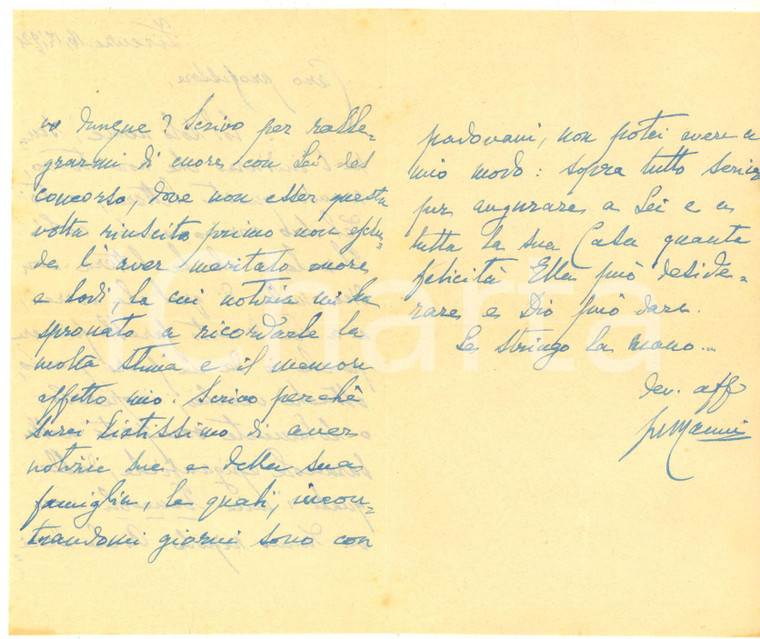 Dunque? Scrivo per ralle-
grarmi di cuore con Lei del
concorso, dove non esser questa
volta riuscito primo non esclu-
de l'aver meritato onore
e lodi, la cui notizia mi ha
spronato a ricordarle la
molta stima e il memore
affetto mio. Scrivo perchè
sarei lietissimo di aver
notizie sue e della sua
famiglia, le quali, incon-
trandomi giorni sono con
padovani, non potei avere a
mio modo: sopra tutto scrivo
per augurare a Lei e a
tutta la sua Casa quanta
felicità Ella può deside-
rare e Dio può dare.
Le stringo la mano...
dev. aff
Manni